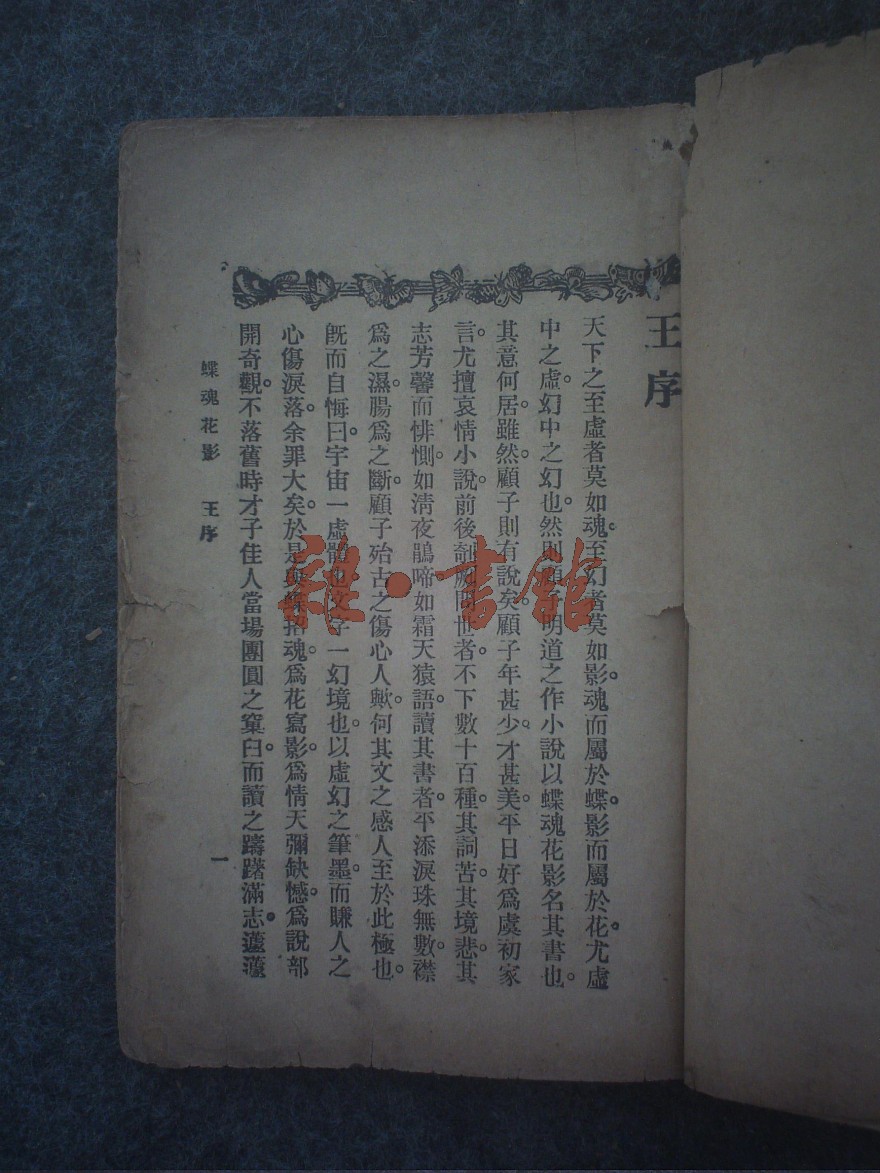 王序
天下之至虛者莫如魂。至幻者莫如影。魂而屬於蝶。影而屬於花。尤虛
中之虛。幻中之幻也。然則顧子明道之作小說以蝶魂花影名其書也。
其意何居。雖然顧子則有說矣。顧子年甚少。才甚美。平日好爲虞初家
言。尤擅哀情小說。前後剞劂問世者。不下數十百種。其詞苦。其境悲。其
志芳馨而悱惻。如清夜鵑啼。如霜天猿語。讀其書者。平添淚珠無數。襟
爲之濕。腸爲之斷。顧子殆古之傷心人歟。何其文之感人至於此極也。
旣而自悔曰。宇宙一虛體也。文字一幻境也。以虛幻之筆墨。而賺人之
心傷淚落。余罪大矣。於是與蝶招魂。爲花寫影。爲情天彌缺憾。爲說部
開奇觀。不落舊時才子佳人當場團圓之窠臼。而讀之躊躇滿志。蘧蘧
蝶魂花影 王序
一
雜·書館